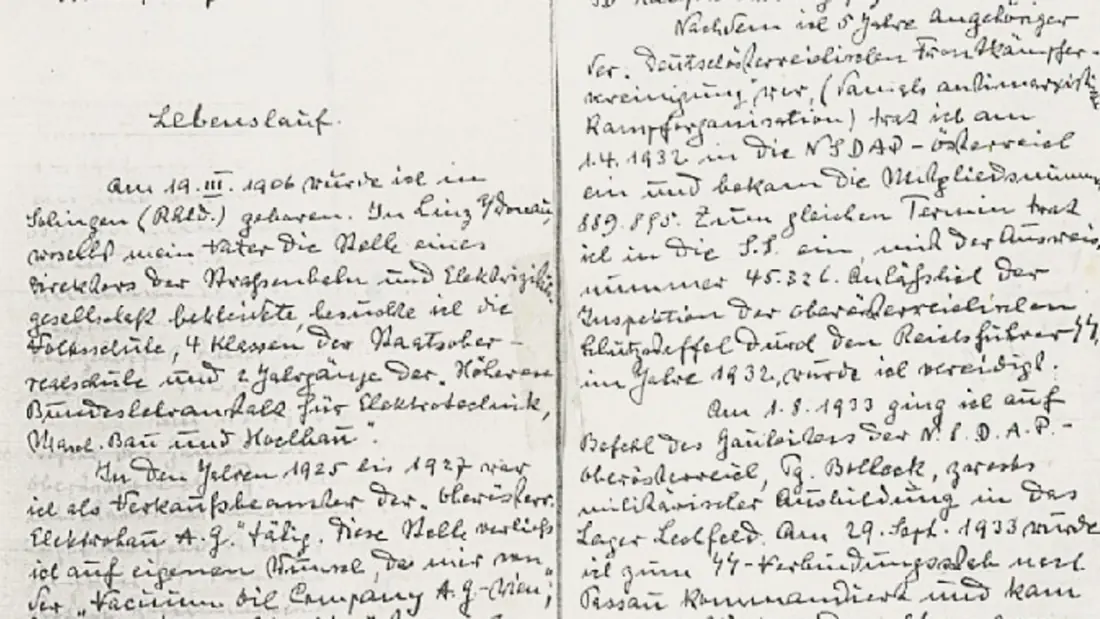 Lebenslauf.
Am 19. III. 1906 wurde ich in
Solingen (Rhld.) geboren. In Linz a/Donau,
woselbst mein Vater die Stelle eines
Direktors der Strassenbahn und Elektrizitäts
gesellschaft bekleidete, besuchte ich die
Volksschule, 4 Klassen der Staatsober-
realschule und 2 Jahrgänge der "Höheren
Bundeslehranstalt für Elektrotechnik,
Masch. Bau und Hochbau".
In den Jahren 1925 bis 1927 war
ich als Verkaufsbeamter der "Oberösterr.
Elektrobau A.G." tätig. Diese Stelle verließ
ich auf eigenen Wunsch, da mir von
der "Vacuum Oil Company A.G.-Wien",
Nachdem ich 5 Jahre Angehöriger
der "Deutschösterreichischen Frontkämpfer-
vereinigung" war, (damals antimarxistische
Kampforganisation) trat ich am
1.4.1932 in die NSDAP-Österreich
ein und bekam die Mitgliedsnummer
889.895. Zum gleichen Termin trat
ich in die S.S. ein, mit der Ausweis-
nummer 45.326. Anläßlich der
Inspektion der oberösterreichischen
Schutzstaffel durch den Reichsführer SS,
im Jahre 1932, wurde ich vereidigt.
Am 1.8.1933 ging ich auf
Befehl des Gauleiters der N.S.D.A.P.-
Oberösterreich, Pg. Bolleck, zwecks
militärischer Ausbildung in das
Lager Lechfeld. Am 29. Sept. 1933 wurde
ich zum SS-Verbindungsstab nach
Passau kommandiert und kam